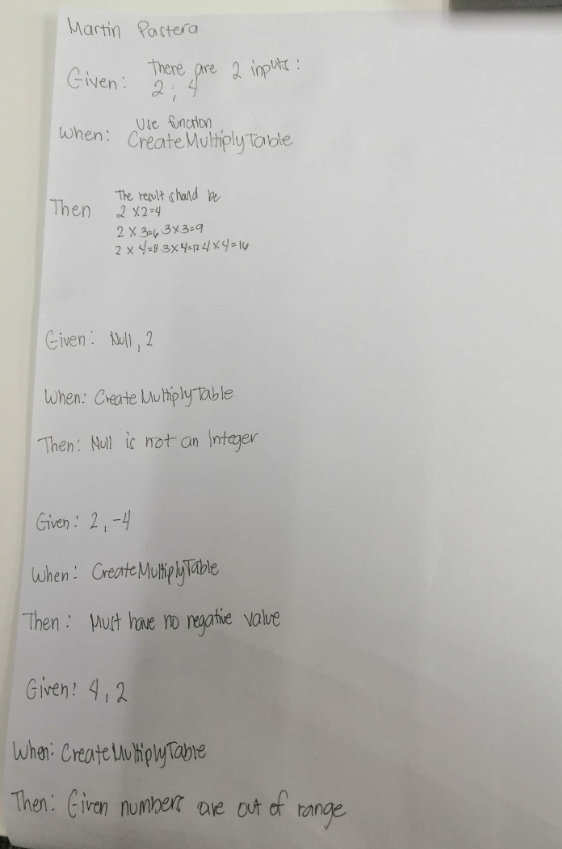 Martin Pastera
There are 2 inputs:
Given: 2, 4
Use function
When: CreateMultiplyTable
The result should be
Then 2 x 2=4
2 x 3=6 3x3=9
2 x 4=8 3x4=12 4x4=16
Given: Null, 2
When: CreateMultiplyTable
Then: Null is not an Integer
Given: 2, -4
When: CreateMultiplyTable
Then: Must have no negative value
Given: 4, 2
When: CreateMultiplyTable
Then: Given numbers are out of range